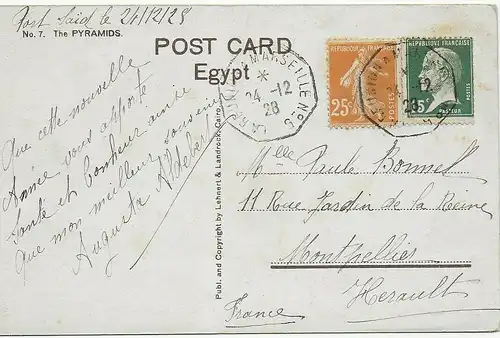 Port Saïd le 24/12/28
No. 7. The PYRAMIDS.
POST CARD
Egypt
Que cette nouvelle
Année vous apporte
Santé et bonheur ainsi
Que mon meilleur souvenir
Auguste Aldebert
Publ. and Copyright by Lehnert & Landrock, Cairo.
LA RÉUNION A MARSEILLE No 5
*
24 -12
28
REPUBLIQUE FRANÇAISE
25c
POSTES
REPUBLIQUE FRANÇAISE
15c
PASTEUR
MARSEILLE
28
Mlle Paule Bonnel
11 Rue Jardin de la Reine
Montpellier
Herault
France